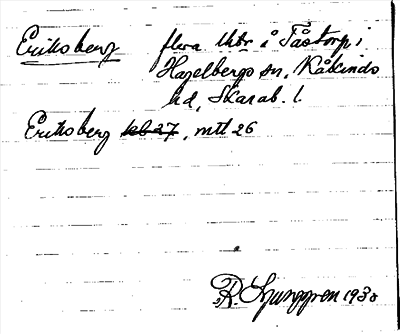 Eriksberg flera lhtr å Tåstorp i
Hagelbergs sn, Kåkinds
hd, Skarab. l.
Eriksberg kb 27, mtl 26
R Ljunggren 1930